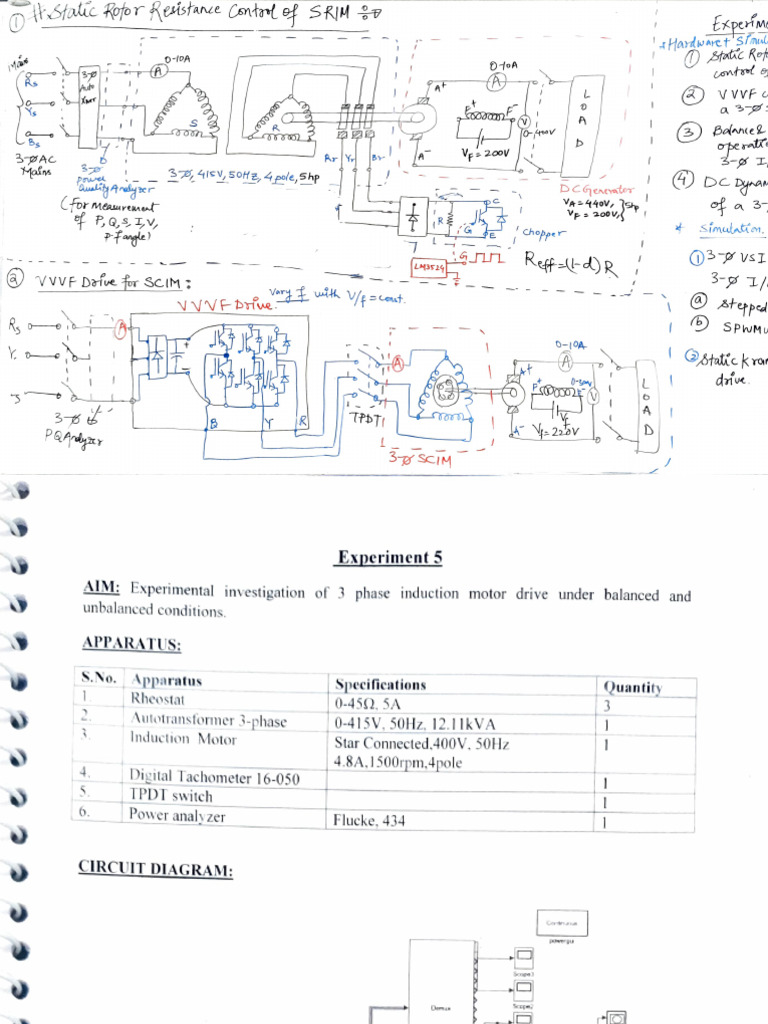 ① #. Static Rotor Resistance Control of SRIM :-
Mains
Rs
Ys
Bs
3-Ø AC
Mains
3-Ø
Auto
Xmer
0-10A
A
S
R
3-Ø
Power
Quality Analyzer
(for measurement
of P, Q, S, I, V,
p.f angle)
3-Ø, 415V, 50Hz, 4 pole, 5hp
Rr Yr Br
0-10A
A+
A
F+ F-
V
0-440V
VF = 200V
A-
LOAD
DC Generator
VA = 440V,
VF = 200V,
5hp
R
C
G
E
Chopper
LM3524
G
Reff = (1-d)R
Experim
* Hardware + Simul
① Static Rot
control o
② VVVF c
a 3-Ø
③ Balance &
operati
3-Ø I.
④ DC Dynam
of a 3-
* Simulation.
① 3-Ø VSI
3-Ø I/
ⓐ Stepped
ⓑ SPWM
② Static Kram
drive.
② VVVF Drive for SCIM :
VVVF Drive.
vary f with V/f = const.
Rs
A
3-Ø
PQ Analyzer
B Y R
TPDT
A
3-Ø SCIM
0-10A
A+
A
F+ F-
V
Vf
Vf = 220V
A-
LOAD
Experiment 5
AIM: Experimental investigation of 3 phase induction motor drive under balanced and
unbalanced conditions.
APPARATUS:
S.No. Apparatus Specifications Quantity
1. Rheostat 0-45Ω, 5A 3
2. Autotransformer 3-phase 0-415V, 50Hz, 12.11kVA 1
3. Induction Motor Star Connected,400V, 50Hz 1
4.8A,1500rpm,4pole
4. Digital Tachometer 16-050 1
5. TPDT switch 1
6. Power analyzer Flucke, 434 1
CIRCUIT DIAGRAM:
Continuous
powergui
Scope3
Scope2
Demux